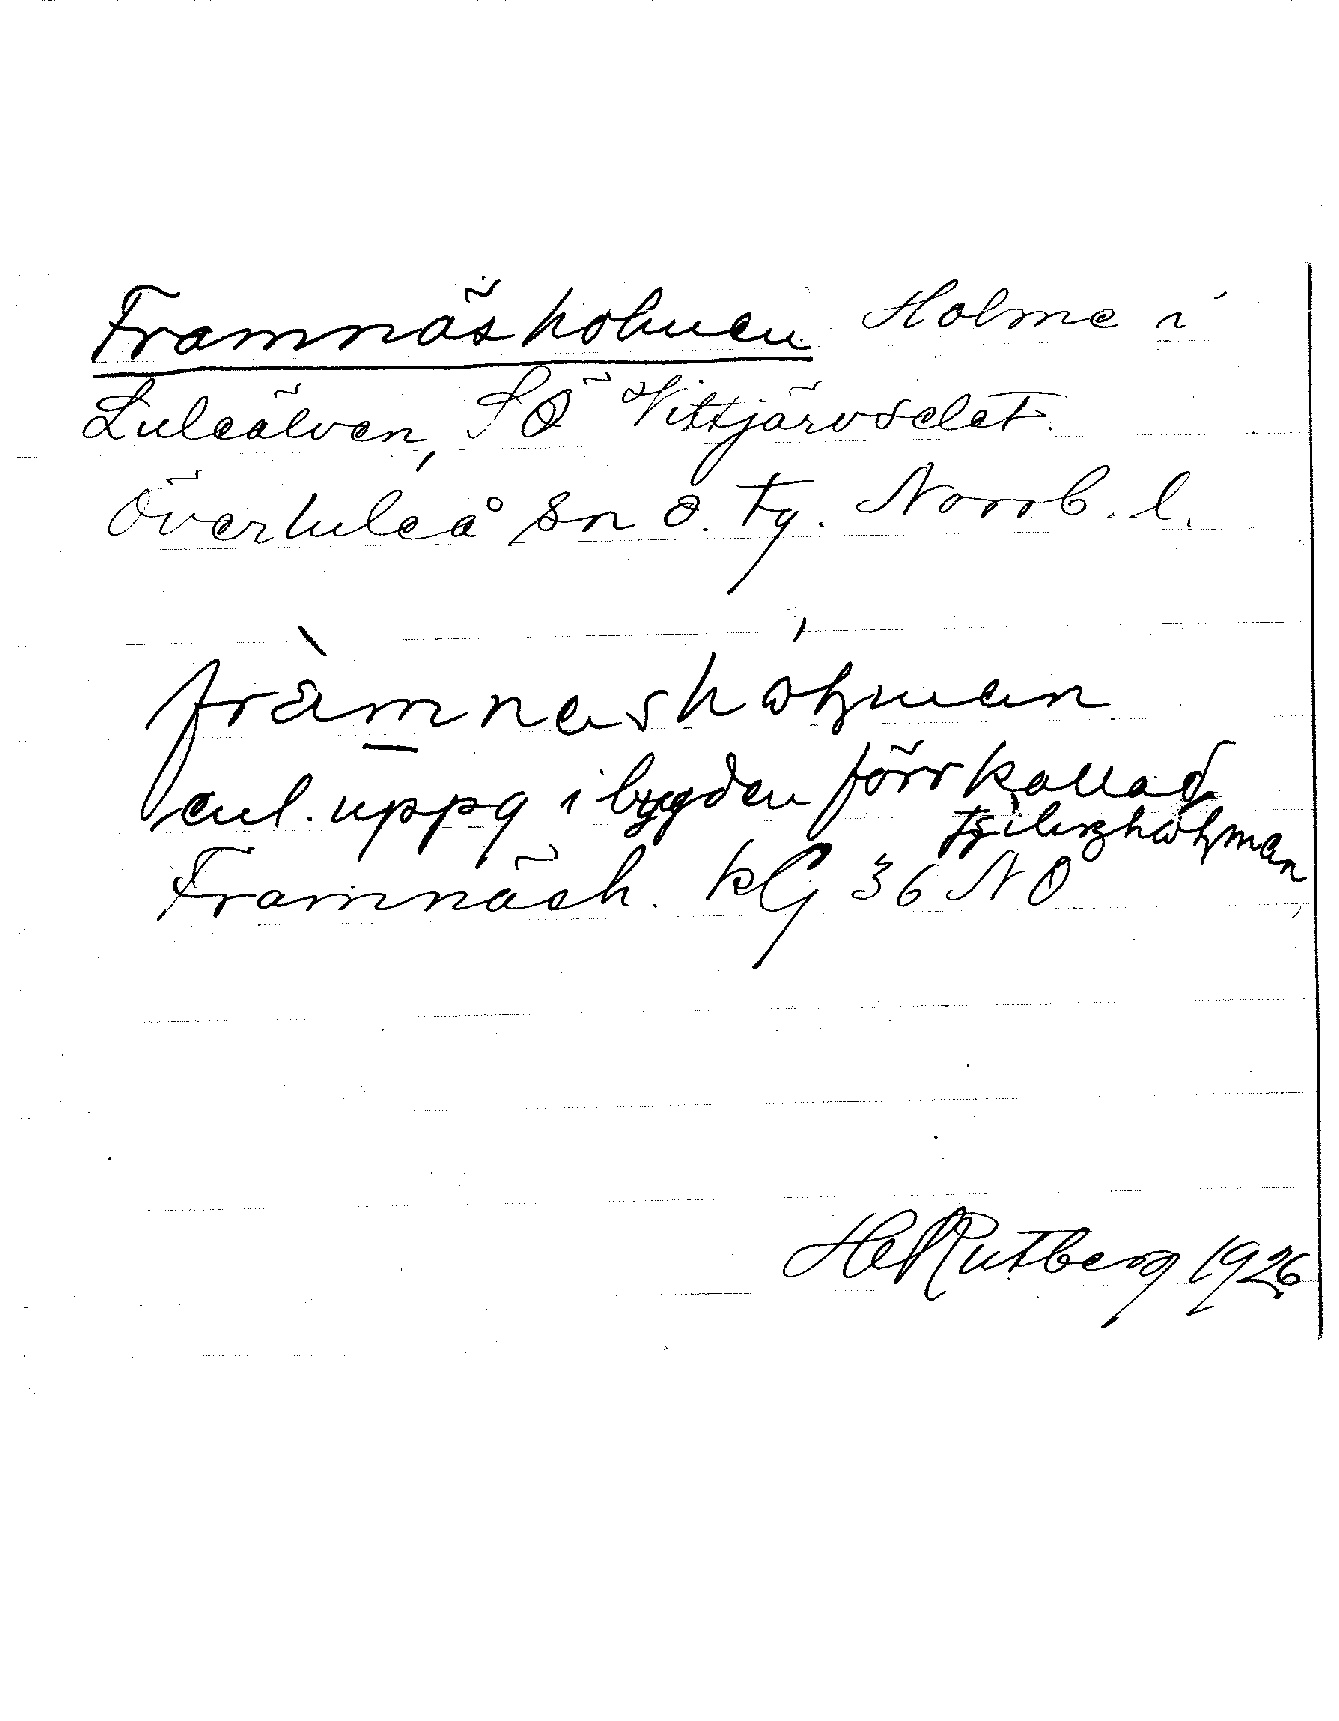 Framnäsholmen Holme i
Luleälven, SÖ Vittjärvselet.
Överluleå sn o. tg. Norrb. l.
främnasholman
enl. uppg i bygden förr kallad
Framnäsh. kG 36 NO
HelRutberg 1926